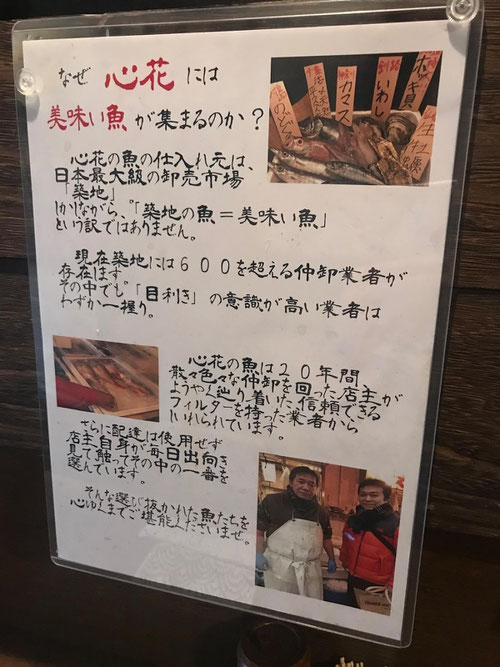 なぜ 心花 には
美味い魚 が集まるのか？
心花の魚の仕入れ元は、
日本最大級の卸売市場
「築地」
しかしながら、「築地の魚＝美味い魚」
という訳ではありません。
現在築地には６００を超える仲卸業者が
存在します
その中でも「目利き」の意識が高い業者は
わずか一握り。
心花の魚は２０年間
散々色々な仲卸を回った店主が
ようやく辿り着いた信頼できる
フィルターを持った業者から
いれられています。
さらに配達は使用せず
店主自身が毎日出向き
見て触ってその中の一番を
選んでいます。
そんな選び抜かれた魚たちを
心ゆくまでご堪能くださいませ。
カマス
いわし
釧路